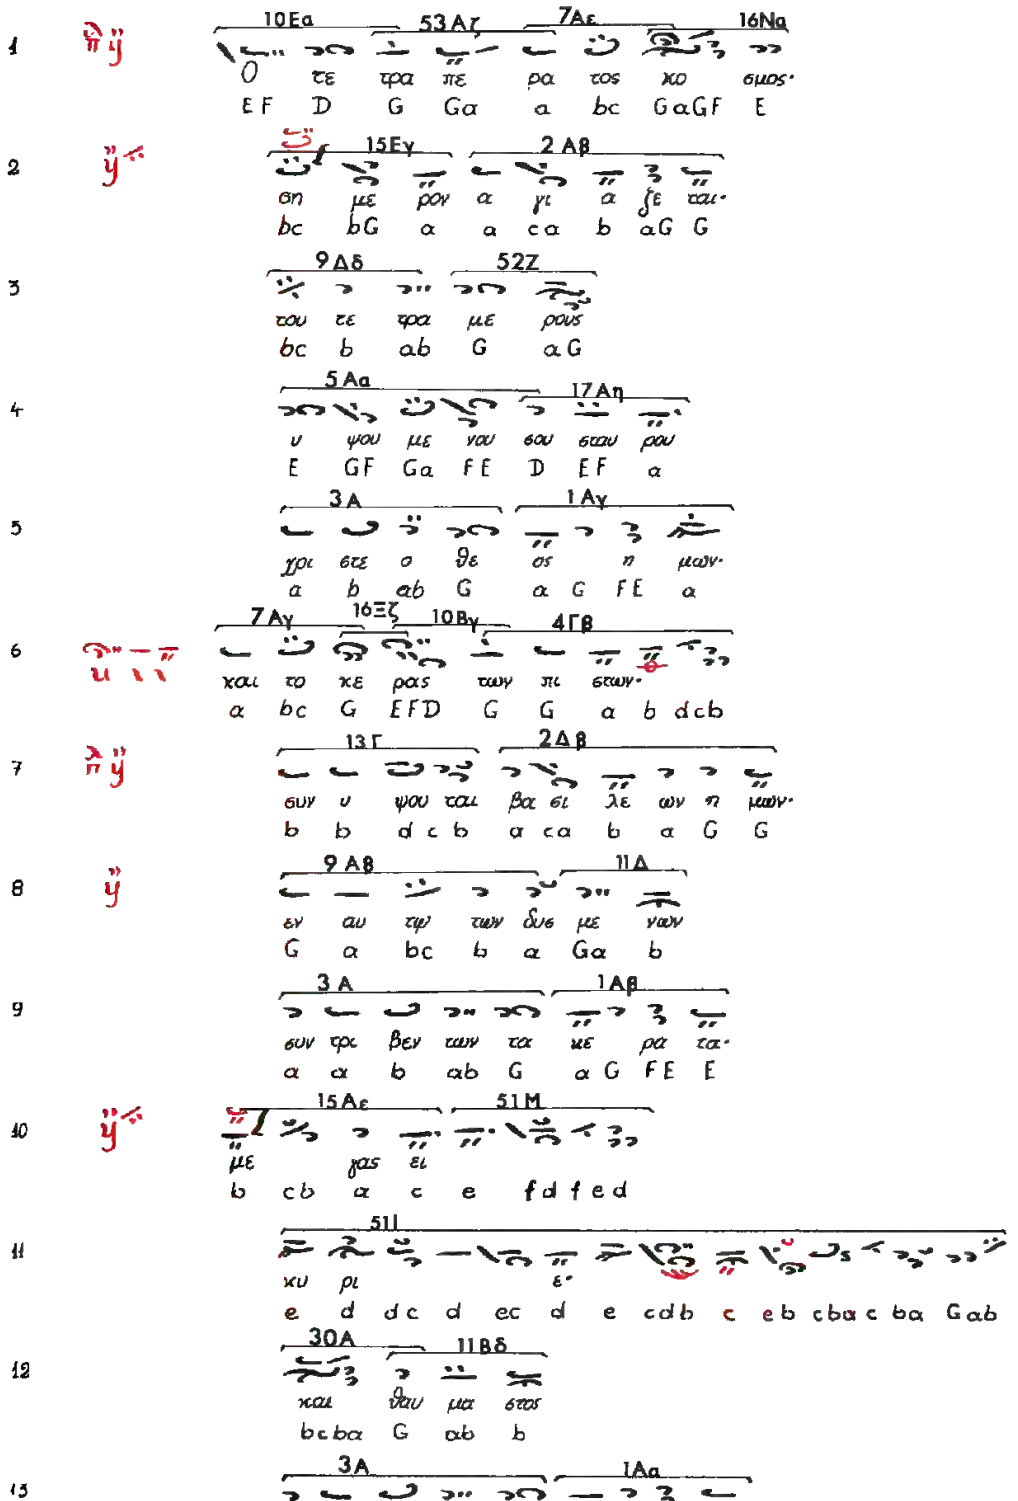 10Εα 53Αζ 7Αε 16Να
1
Ο τε τρα πε ρα τος κο σμος·
E F D G Ga a bc GaGF E
15Εγ 2Αβ
2
ση με ρον α γι α ζε ται·
bc bG a a ca b aG G
9Δδ 52Ζ
3
του τε τρα με ρους
bc b ab G aG
5Αα 17Αη
4
υ ψου με νου σου σταυ ρου
E GF Ga FE D EF a
3Α 1Αγ
5
χρι στε ο θε ος η μων·
a b ab G a G FE a
7Αγ 16Ξζ 10Βγ 4Γβ
6
και το κε ρας των πι στων·
a bc G EFD G G a b dcb
13Γ 2Δβ
7
συν υ ψου ται βα σι λε ων η μων·
b b d c b a ca b a G G
9Αβ 11Δ
8
εν αυ τῳ των δυσ με νων
G a bc b a Ga b
3Α 1Αβ
9
συν τρι βεν των τα κε ρα τα·
a a b ab G a G FE E
15Αε 51Μ
10
με γας ει
b cb a c e fd f e d
51Ι
11
κυ ρι ε·
e d dc d ec d e cdb c eb cbac ba Gab
30Α 11Βδ
12
και θαυ μα στος
bcba G ab b
3Α 1Αα
13